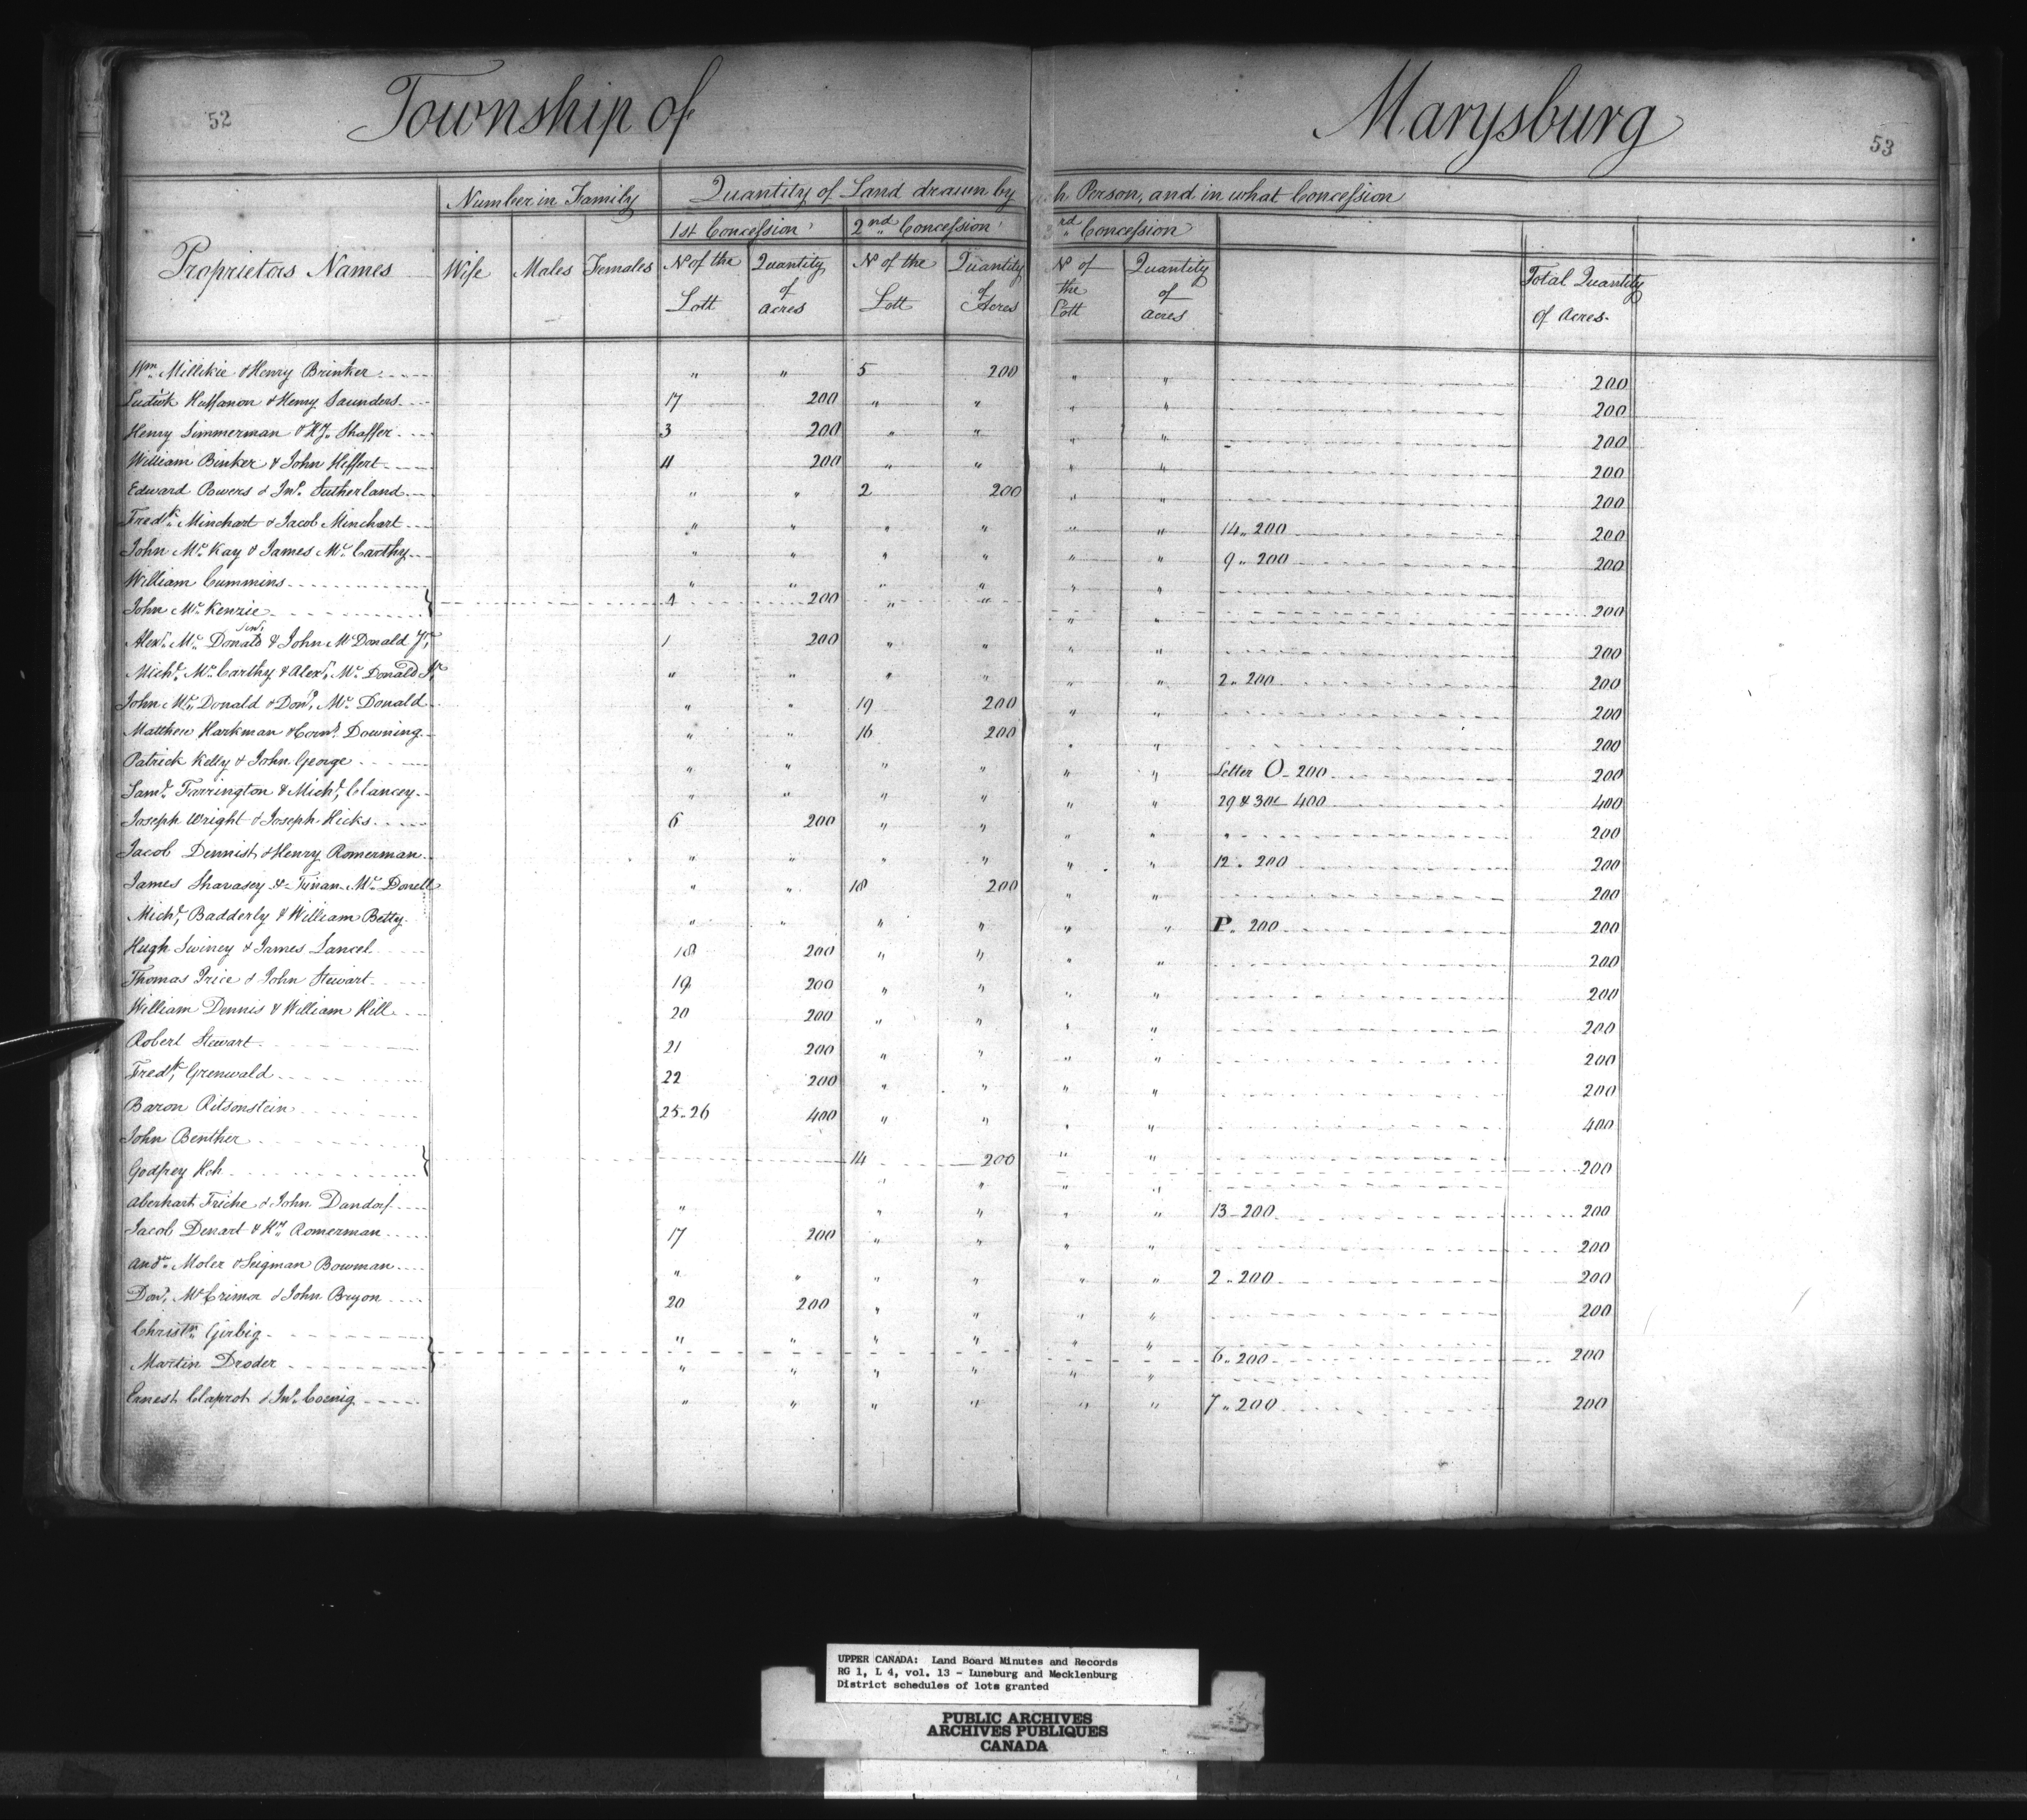 52
Township of Marysburg
53
Number in Family
Quantity of Land drawn by h Person, and in what Concession
1st Concession 2nd Concession rd Concession
Proprietors Names Wife Males Females No of the Lott Quantity of acres No of the Lott Quantity of Acres No of the Lott Quantity of acres Total Quantity of Acres
Wm Millikie & Henry Brinker " " 5 200 " " 200
Ludwk Huffanon & Henry Saunders 17 200 " " " " 200
Henry Simmerman & HJ. Shaffer 3 200 " " " " 200
William Binker & John Heffert 4 200 " " " " 200
Edward Powers & Jno. Sutherland " " 2 200 " " 200
Fredk. Minchart & Jacob Minchart " " " " " " 14 " 200 200
John Mc Kay & James Mc Carthy " " " " " " 9 " 200 200
William Cummins " " " " " "
John Mc Kenzie 4 200 " " " " 200
Alexr. Mc Donald Senr. & John McDonald Jr. 1 200 " " " " 200
Michl. Mc Carthy & Alexr. Mc Donald Jr " " " " " " 2 " 200 200
John Mc Donald & Dond. Mc Donald " " 19 200 " " 200
Matthew Harkman & Corns. Downing " " 16 200 " " 200
Patrick Kelly & John George " " " " " " Letter O - 200 200
Saml. Farrington & Michl. Clancey " " " " " " 29 & 30 - 400 400
Joseph Wright & Joseph Hicks 6 200 " " " " 200
Jacob Dennist & Henry Romerman " " " " " " 12 " 200 200
James Shavasey & Finan Mc Donell " " 18 200 " " 200
Michl. Badderly & William Betty " " " " " " P " 200 200
Hugh Swiney & James Lancel 18 200 " " " " 200
Thomas Price & John Stewart 19 200 " " " " 200
William Dennis & William Hill 20 200 " " " " 200
Robert Stewart 21 200 " " " " 200
Fredk. Grenwald 22 200 " " " " 200
Baron Ritsonstein 25 " 26 400 " " " " 400
John Benther " "
Godfrey Hch 14 200 " " 200
Aberhart Friche & John Dandorf " " " " " 13 - 200 200
Jacob Denart & Hy Romerman 17 200 " " " " 200
Andw. Moler & Seigman Bowman " " " " " " 2 " 200 200
Dond. McCrimon & John Bryon 20 200 " " " " 200
Christn. Girbig " " " " " "
Martin Droder " " " " " " 6 " 200 200
Ernest Claprot & Jno. Coenig " " " " " " 7 " 200 200
UPPER CANADA: Land Board Minutes and Records
RG 1, L 4, vol. 13 - Luneburg and Mecklenburg
District schedules of lots granted
PUBLIC ARCHIVES
ARCHIVES PUBLIQUES
CANADA